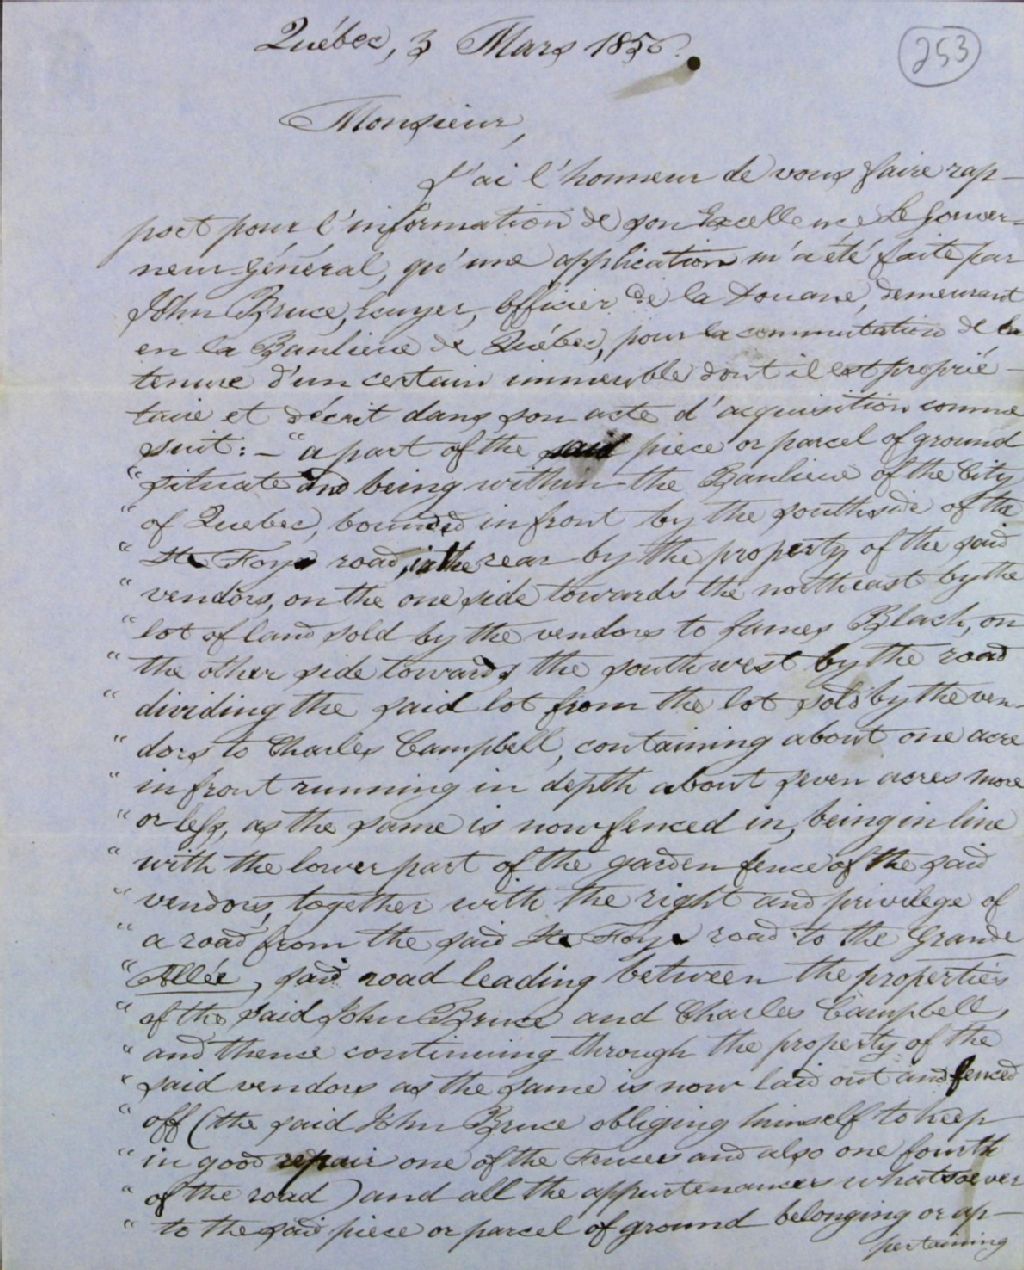 253
Québec, 3 Mars 1856.
Monsieur,
J'ai l'honneur de vous faire rap-
port pour l'information de son Excellence Le Gouver-
neur-Général, qu'une application m'a été faite par
John Bruce, Ecuyer, Officier de la Douane, demeurant
en la Banlieue de Québec, pour la commutation de la
tenure d'un certain immeuble dont il est proprié-
taire et décrit dans son acte d'acquisition comme
suit: - "a part of the said piece or parcel of ground
" situate and being within the Banlieue of the City
" of Quebec, bounded in front by the south side of the
" Ste Foye road, in the rear by the property of the said
" vendors, on the one side towards the north east by the
" lot of land sold by the vendors to James Black, on
" the other side towards the south west by the road
" dividing the said lot from the lot sold by the ven-
" dors to Charles Campbell, containing about one acre
" in front running in depth about seven acres more
" or less, as the same is now fenced in, being in line
" with the lower part of the garden fence of the said
" vendors, together with the right and privilege of
" a road from the said Ste Foye road to the Grande
" Allée, said road leading between the properties
" of the said John Bruce and Charles Campbell,
" and thence continuing through the property of the
" said vendors as the same is now laid out and fenced
" off (the said John Bruce obliging himself to keep
" in good repair one of the Fences and also one fourth
" of the road) and all the appurtenances whatsoever
" to the said piece or parcel of ground belonging or ap-
pertaining